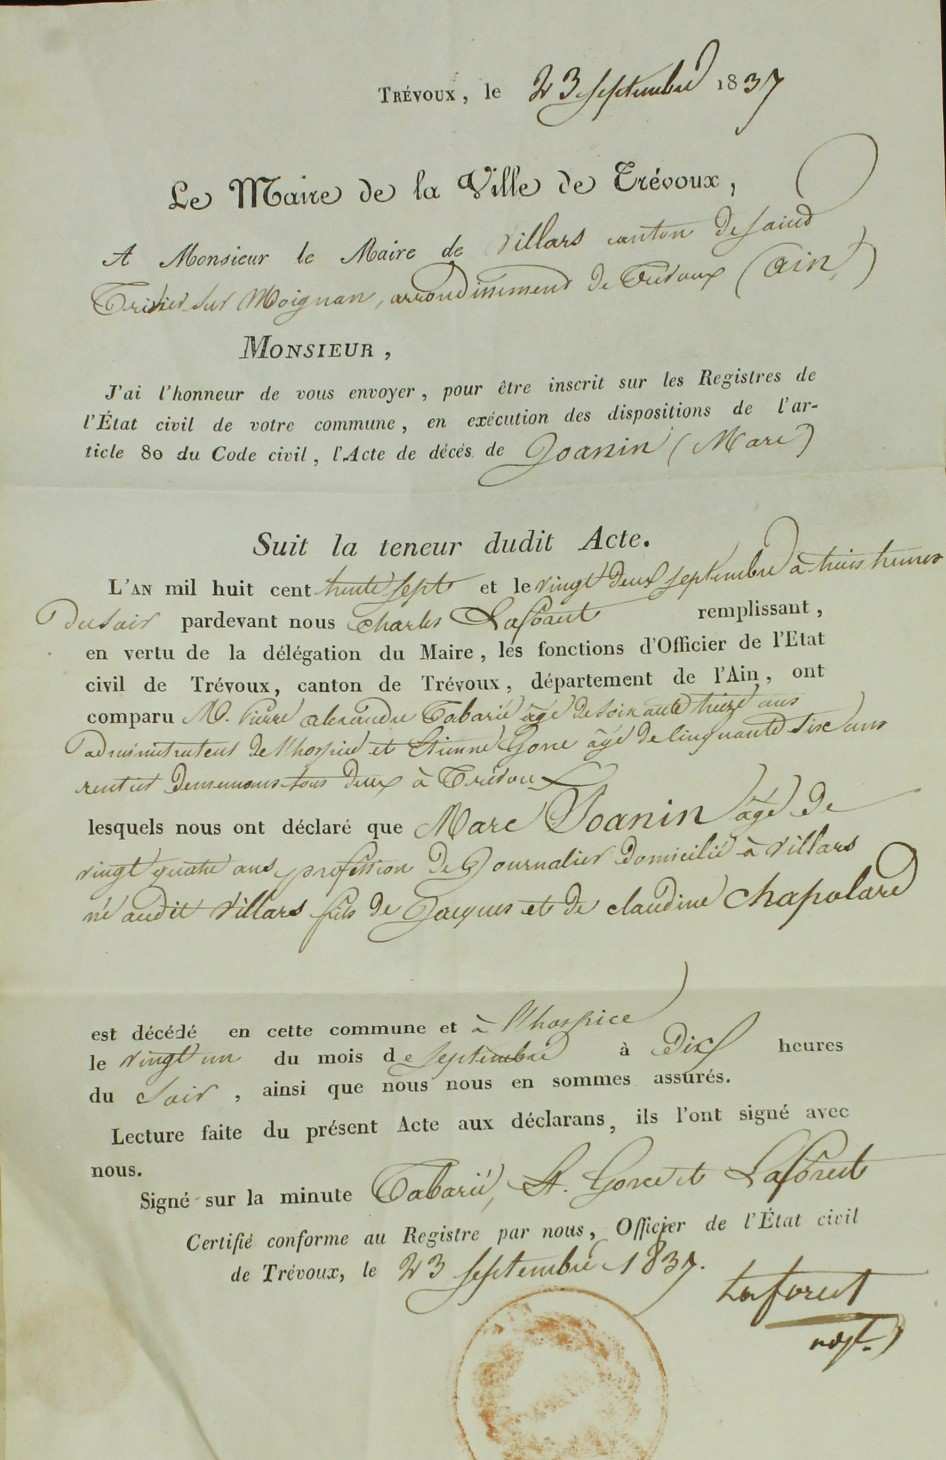 Trévoux, le 23 septembre 1837
Le Maire de la Ville de Trévoux,
A Monsieur le Maire de Villars canton de Saint
Trivier sur Moignan, arrondissement de Trévoux (Ain)
Monsieur,
J'ai l'honneur de vous envoyer, pour être inscrit sur les Registres de
l'État civil de votre commune, en exécution des dispositions de l'ar-
ticle 80 du Code civil, l'Acte de décès de Joanin (Marc)
Suit la teneur dudit Acte.
L'an mil huit cent trente sept et le vingt deux septembre à trois heures
du soir pardevant nous Charles Laforest remplissant,
en vertu de la délégation du Maire, les fonctions d'Officier de l'Etat
civil de Trévoux, canton de Trévoux, département de l'Ain, ont
comparu M. Pierre alexandre Tabarié âgé de soixante treize ans
administrateur de l'hospice et Etienne Gonce âgé de cinquante six ans
rentier demeurans tous deux à Trévoux
lesquels nous ont déclaré que Marc Joanin âgé de
vingt quatre ans, profession de Journalier domicilié à Villars
né audit Villars fils de Jacques et de claudine Chapolard
est décédé en cette commune et à l'hospice
le vingt un du mois de septembre à Dix heures
du soir, ainsi que nous nous en sommes assurés.
Lecture faite du présent Acte aux déclarans, ils l'ont signé avec
nous.
Signé sur la minute Tabarié, Gonce et Laforest
Certifié conforme au Registre par nous, Officier de l'État civil
de Trévoux, le 23 septembre 1837.
Laforest